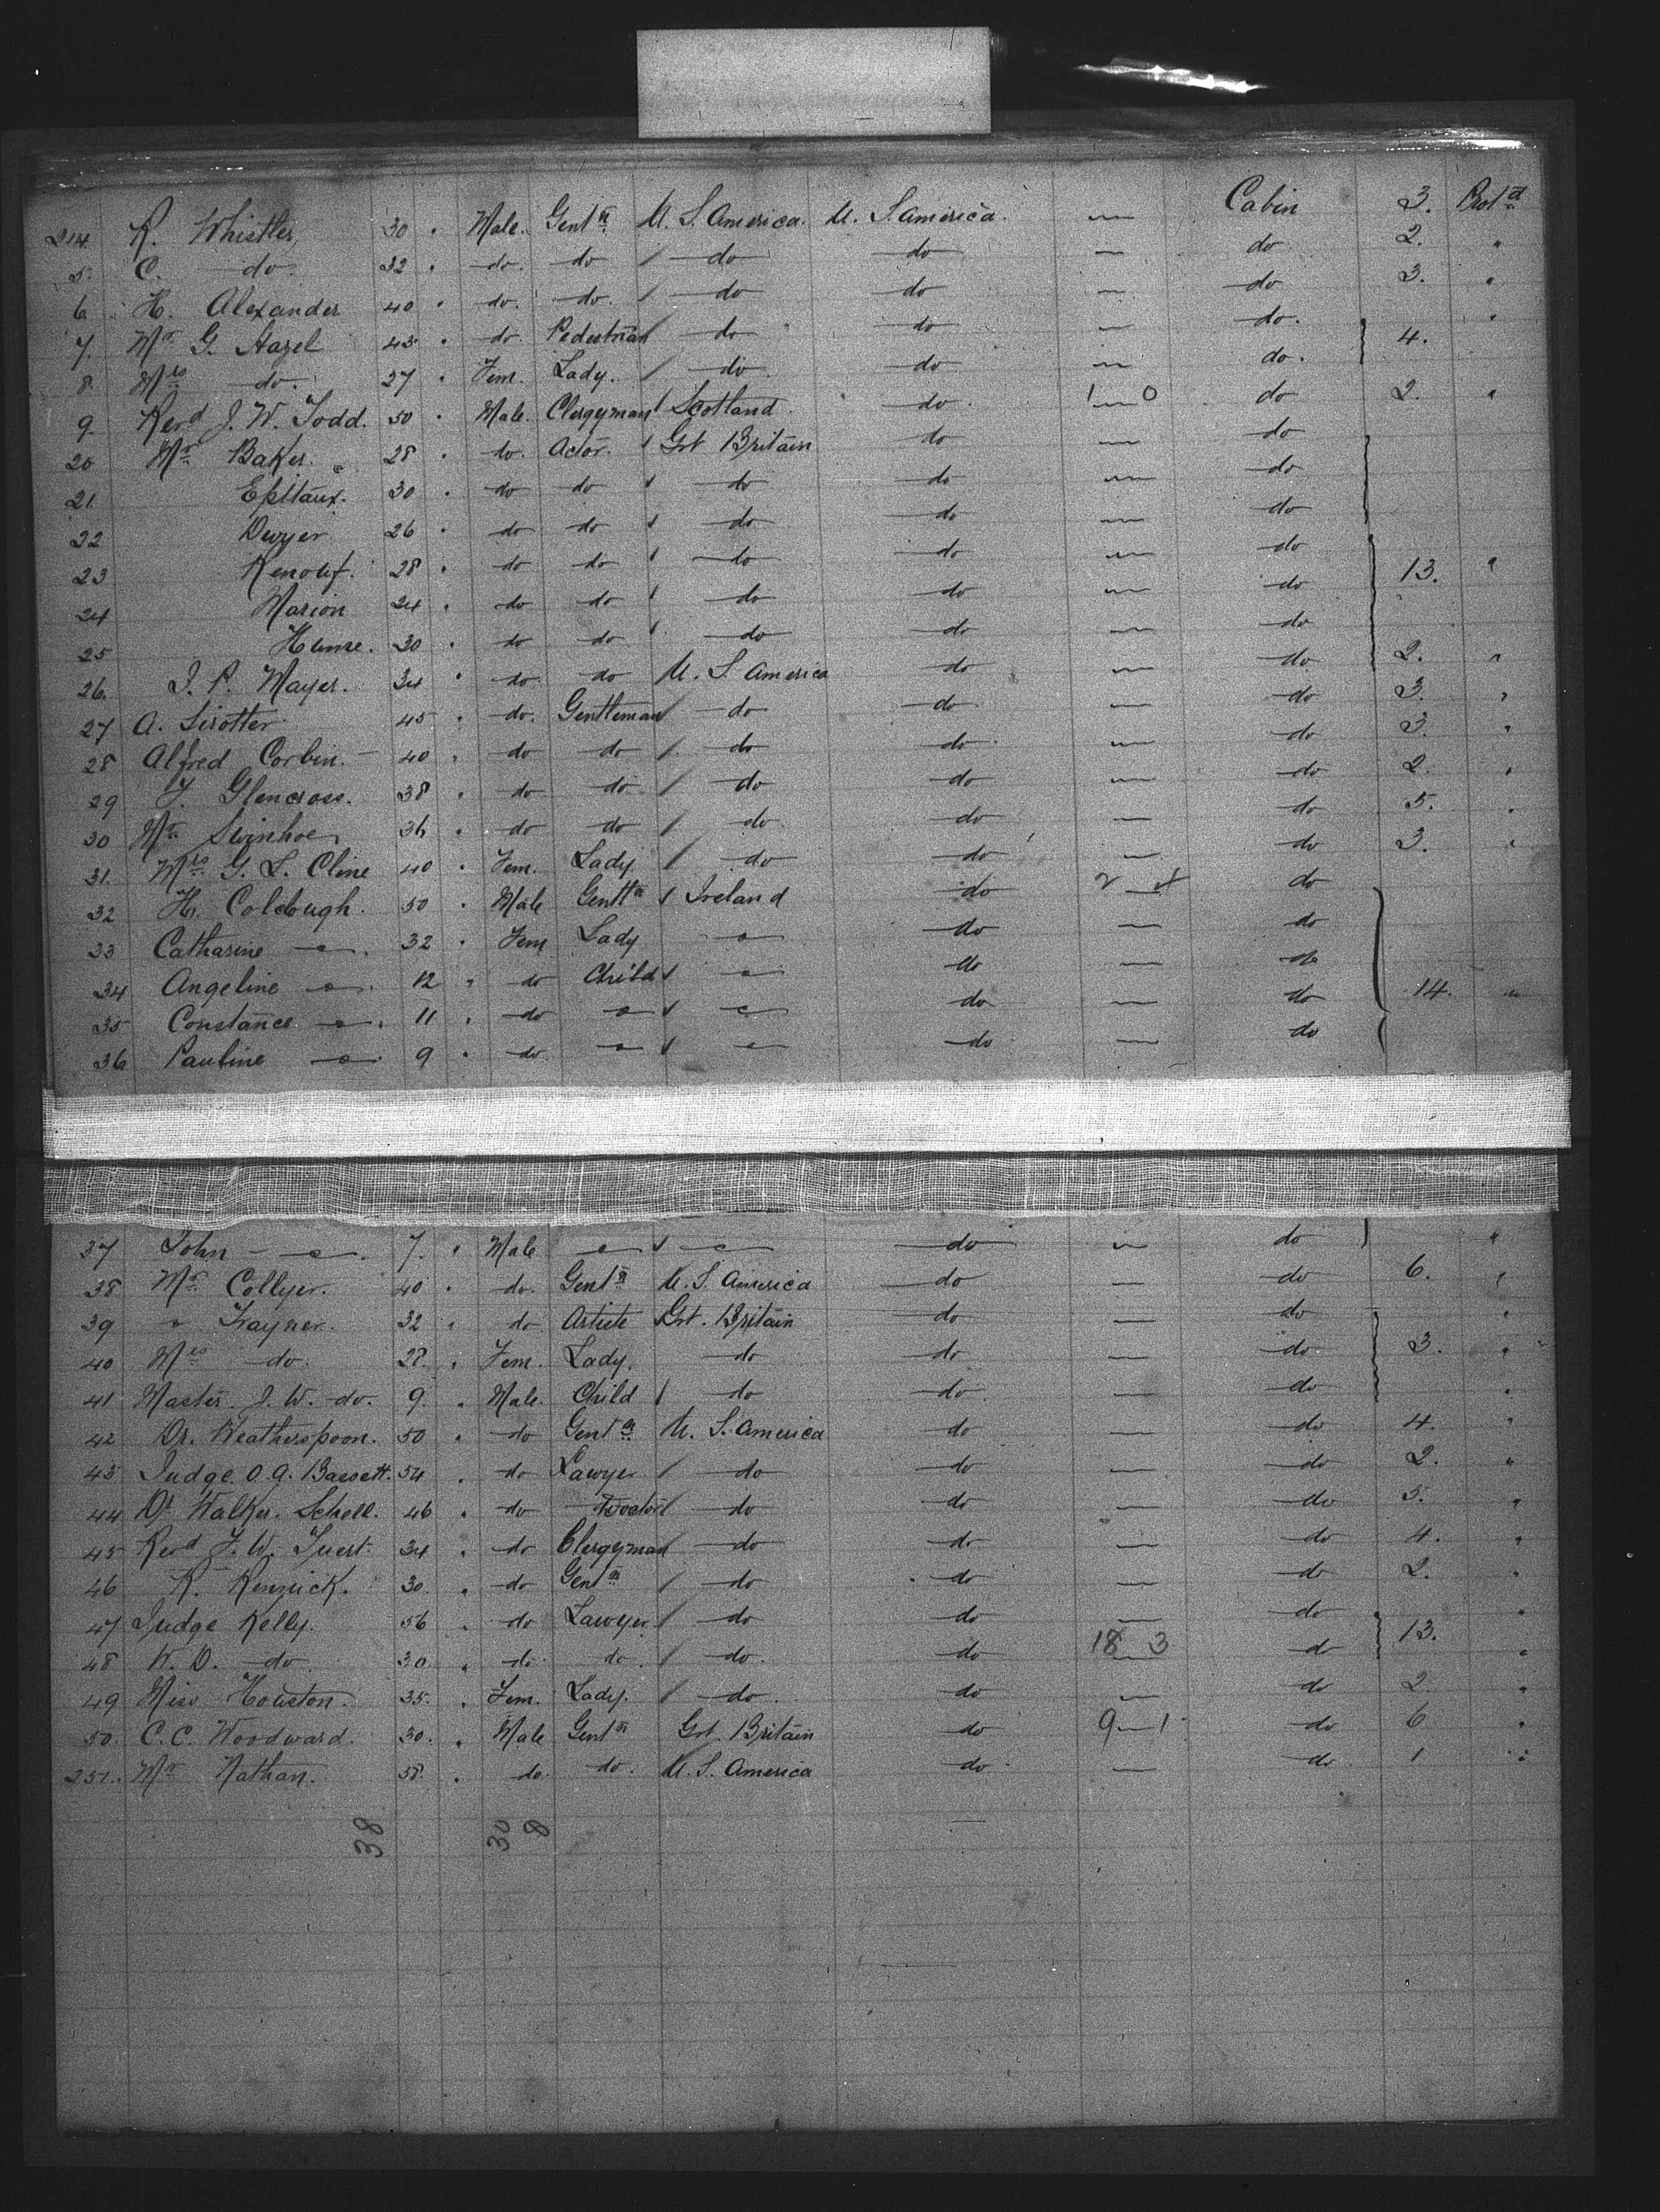 214 R. Whistler, 30 " Male. Gent<sup>n</sup> U. S. America. U. S. America. — Cabin 3. Prot<sup>d</sup>
5. C. do. 32 " do. do / do do — do 2. "
6. H. Alexander 40 " do. do. / do do — do 3. "
7. M<sup>r</sup> G. Hazel 45 " do Pedestrian do do — do. 4. "
8. M<sup>rs</sup> do. 27 " Fem. Lady. / do. do — do.
9. Rev<sup>d</sup> J. W. Todd. 50 " Male. Clergyman Scotland do. 1 — 0 do 2. "
20 M<sup>r</sup> Baker. 28 " do. Actor. Grt Britain do — do
21. 30 " do do do do — do
22 Dwyer 26 " do do do do — do
23 Renouf. 28 " do do do do — do 13. "
24 Marion 24 " do do do do — do
25 Hume. 30 " do do. do do — do
26. J. P. Mayer. 34 " do. do U. S. America do — do 2. "
27 A. 45 " do. Gentleman do do — do 3. "
28 Alfred Corbin. — 40 " do do / do do. — do 3. "
29 J. Glencross. 38 " do do / do do — do 2. "
30 M<sup>r</sup> Swinhoe 36 " do do / do do — do 5. "
31. M<sup>rs</sup> G. L. Cline 40 " Fem. Lady / do do — do 3. "
32 H. Colclough. 50 " Male Gentn Ireland do 2 — do
33 Catharine — 32 " Fem Lady — do — do
34 Angeline — 12 " do Child — do — do 14. "
35 Constance — 11 " do — — do — do
36 Pauline — 9 " do — — do — do
37 John — 7. " Male — — do — do "
38 M<sup>r</sup> Collyer. 40 " do. Gent<sup>n</sup> U. S. America do — do 6. "
39 " Trayner. 32 " do Artiste Grt. Britain do — do "
40 M<sup>rs</sup> do. 28. " Fem. Lady. do do — do 3. "
41 Master. J. W. do. 9. " Male. Child / do do — do "
42 Dr. Weatherspoon. 50 " do Gent<sup>n</sup> U. S. America do — do 4. "
43 Judge. O. A. Bassett. 54 " do Lawyer / do do — do 2. "
44 Dr Walker. Schell. 46 " do Doctor / do do — do 5. "
45 Rev<sup>d</sup> J. W. 34 " do Clergyman do do — do 4. "
46 R. Renwick. 30. " do Gent<sup>n</sup> / do do — do 2. "
47 Judge Kelly. 56 " do Lawyer / do do — do "
48 W. D. do 30. " do do. / do. do 18 3 do 13. "
49 Miss Houston. 35. " Fem. Lady. / do. do — do 2. "
50. C. C. Woodward. 30. " Male Gent<sup>n</sup> Grt. Britain do 9 — 1 do 6 "
251. M<sup>r</sup> Nathan. 58. " do do. U. S. America do. — do 1 "
38 30 8